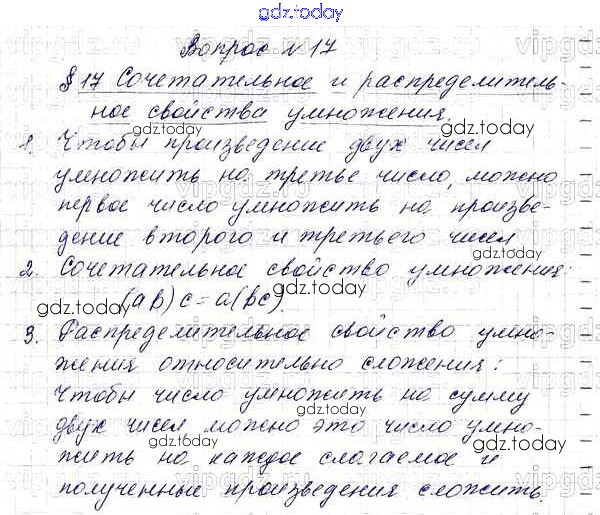 gdz.today
Вопрос №17
§ 17 Сочетательное и распределитель-
ное свойства умножения.
gdz.today gdz.today
1. Чтобы произведение двух чисел
умножить на третье число, можно
первое число умножить на произве-
дение второго и третьего чисел
2. Сочетательное свойство умножения:
gdz.today gdz.today
(ab)c=a(bc).
3. Распределительное свойство умно-
жения относительно сложения:
Чтобы число умножить на сумму
двух чисел можно это число умно-
gdz.today gdz.today
жить на каждое слагаемое и
полученные произведения сложить.